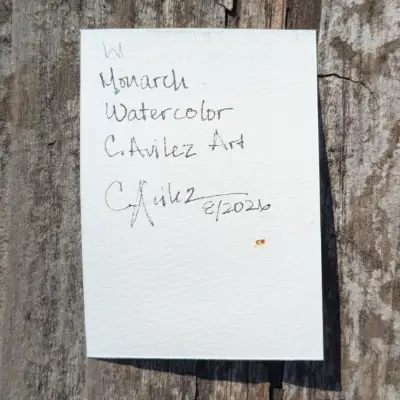 W
Monarch
Watercolor
C. Avilez Art
C. Avilez 8/2026